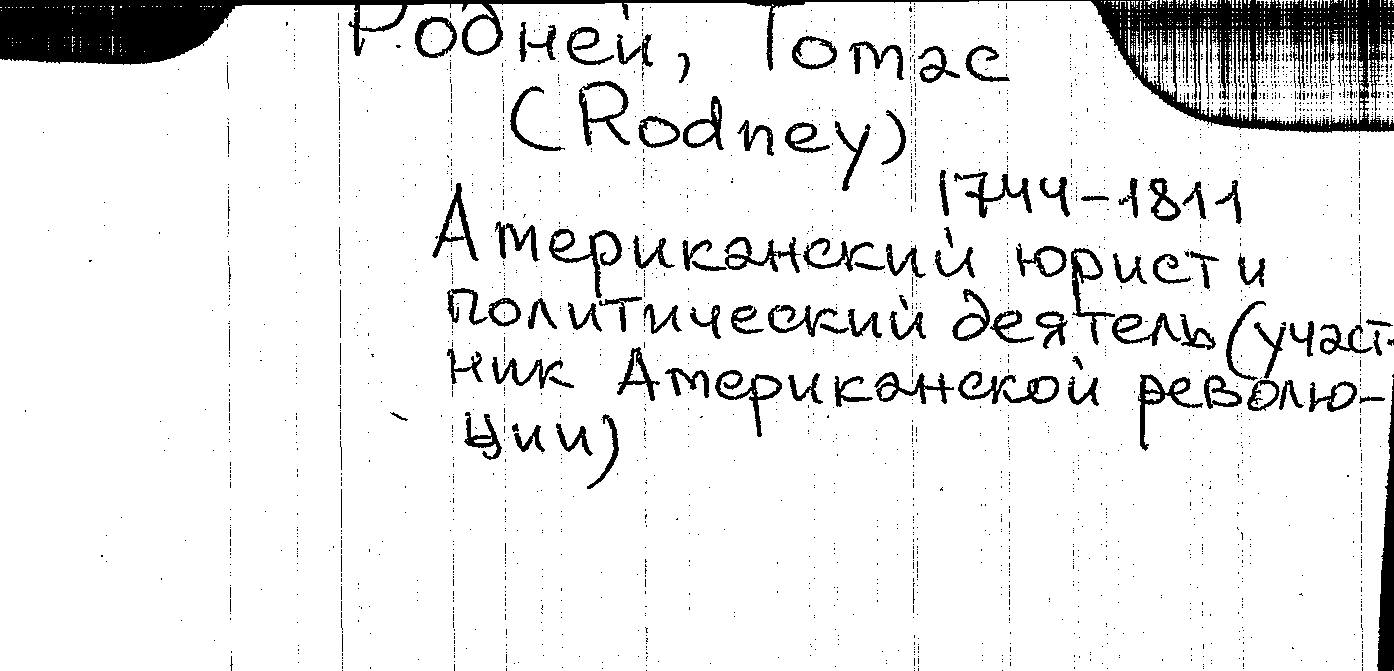 Родней, Томас
(Rodney)
1744-1811
Американский юрист и
политический деятель (участ-
ник Американской револю-
ции)